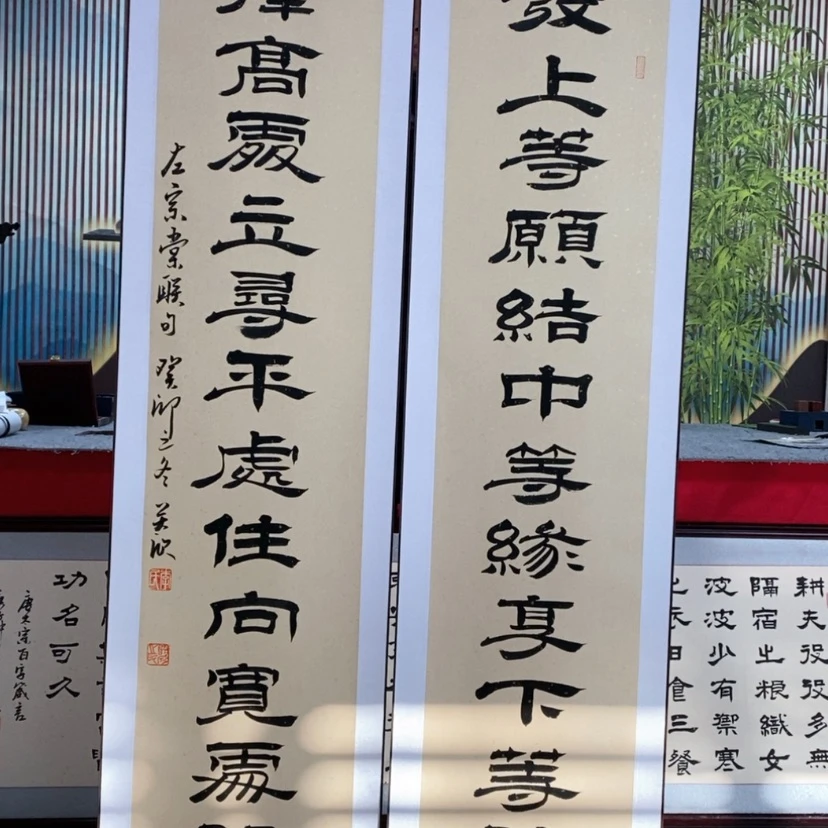 發上等願結中等緣享下等
擇高處立尋平處住向寬處
左宗棠联句 癸卯立冬
耕夫役役多無
隔宿之粮織女
波波少有禦寒
之衣日食三餐
功名可久
唐太宗百字箴言